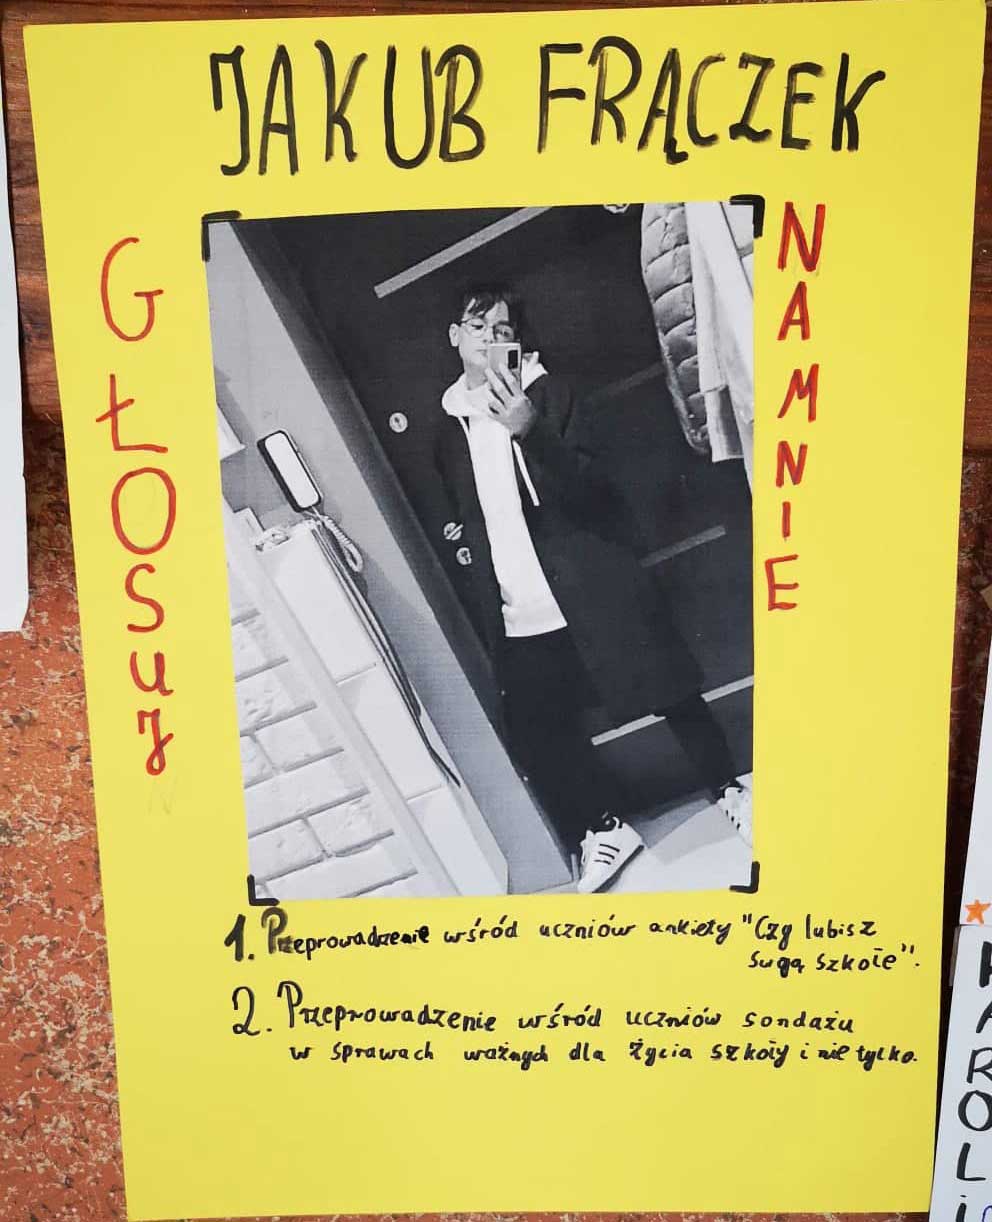 JAKUB FRĄCZEK
GŁOSuJ
NA MNIE
1. Przeprowadzenie wśród uczniów ankiety "Czy lubisz
swoją szkołę".
2. Przeprowadzenie wśród uczniów sondażu
w sprawach ważnych dla życia szkoły i nie tylko.
KAROLi